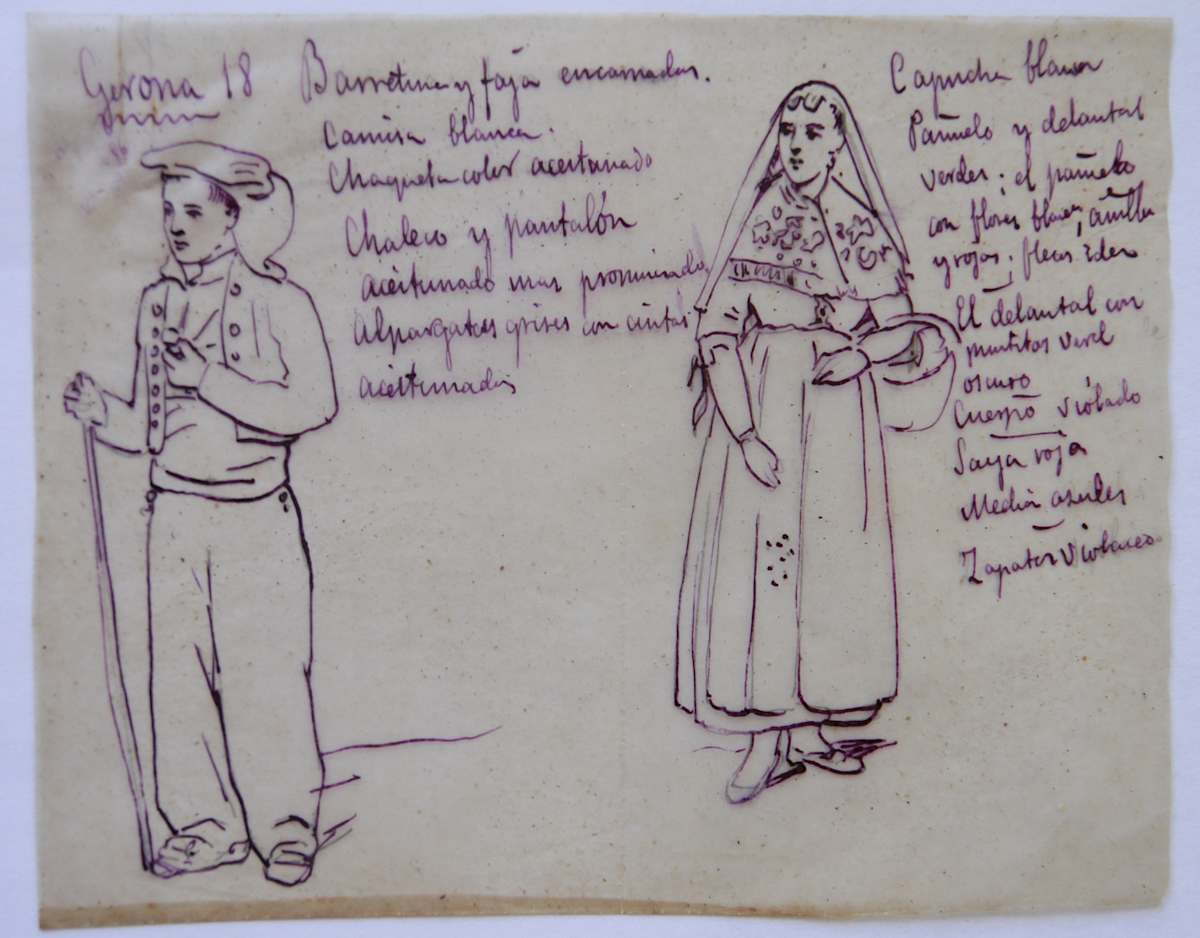 Gerona 18
Barretina y faja encarnadas.
Camisa blanca.
Chaqueta color aceitunado
Chaleco y pantalón
aceitunado mas pronunciado
Alpargatas grises con cintas
aceitunadas
Capucha blanca
Pañuelo y delantal
verdes; el pañuelo
con flores blancas,
y rojas; flecos idem
El delantal con
puntitos verde
oscuro
Cuerpo violado
Saya roja
Medias azules
Zapatos